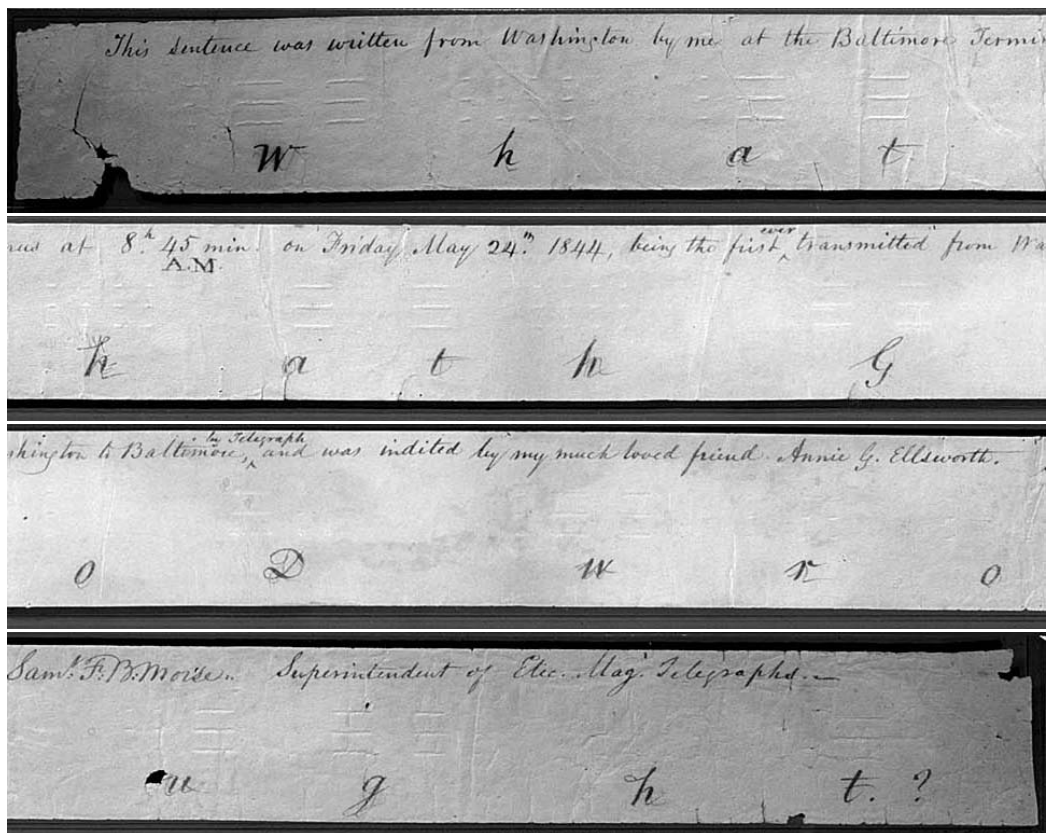 This sentence was written from Washington by me at the Baltimore Termi
W h a t
nus at 8.h 45 min. on Friday May 24.th 1844, being the first ever transmitted from Wa
A.M.
h a t h G
shington to Baltimore, by Telegraph and was indited by my much loved friend Annie G. Ellsworth.
o D w r o
Sam.l F. B. Morse. Superintendent of Elec. Mag. Telegraphs.
u g h t. ?